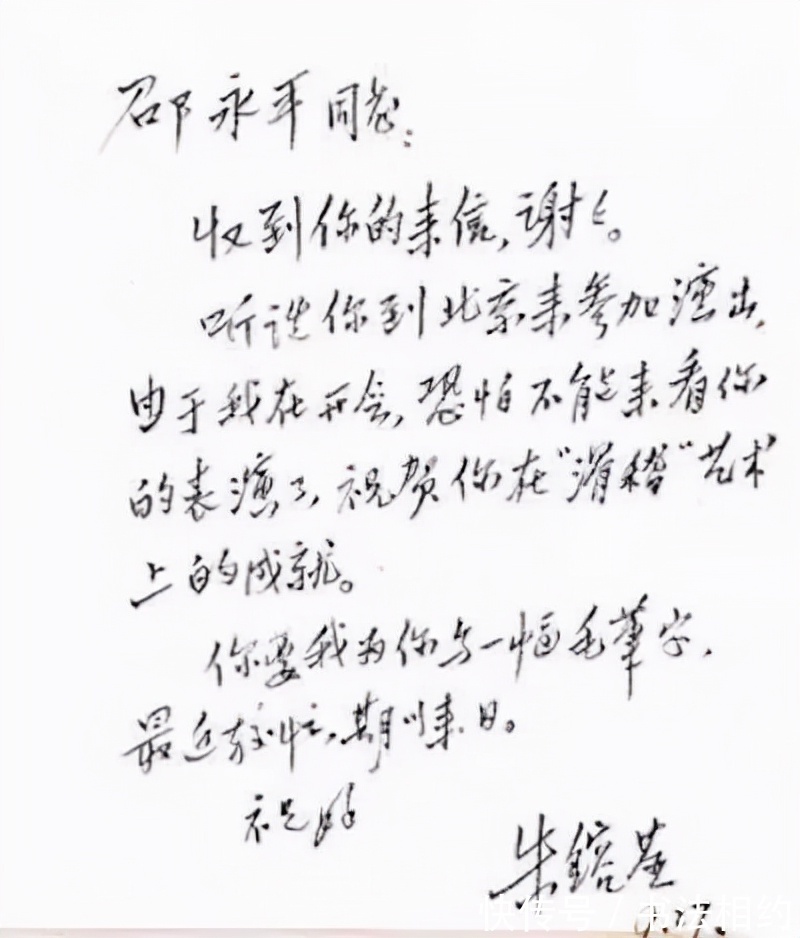 邵永平同志：
收到你的来信，谢々。
听说你到北京来参加演出，
由于我在开会，恐怕不能来看你
的表演了，祝贺你在"滑稽"艺术
上的成就。
你要我为你写一幅毛筆字，
最近较忙，期以来日。
祝好
朱鎔基
快传号 / 书法相约